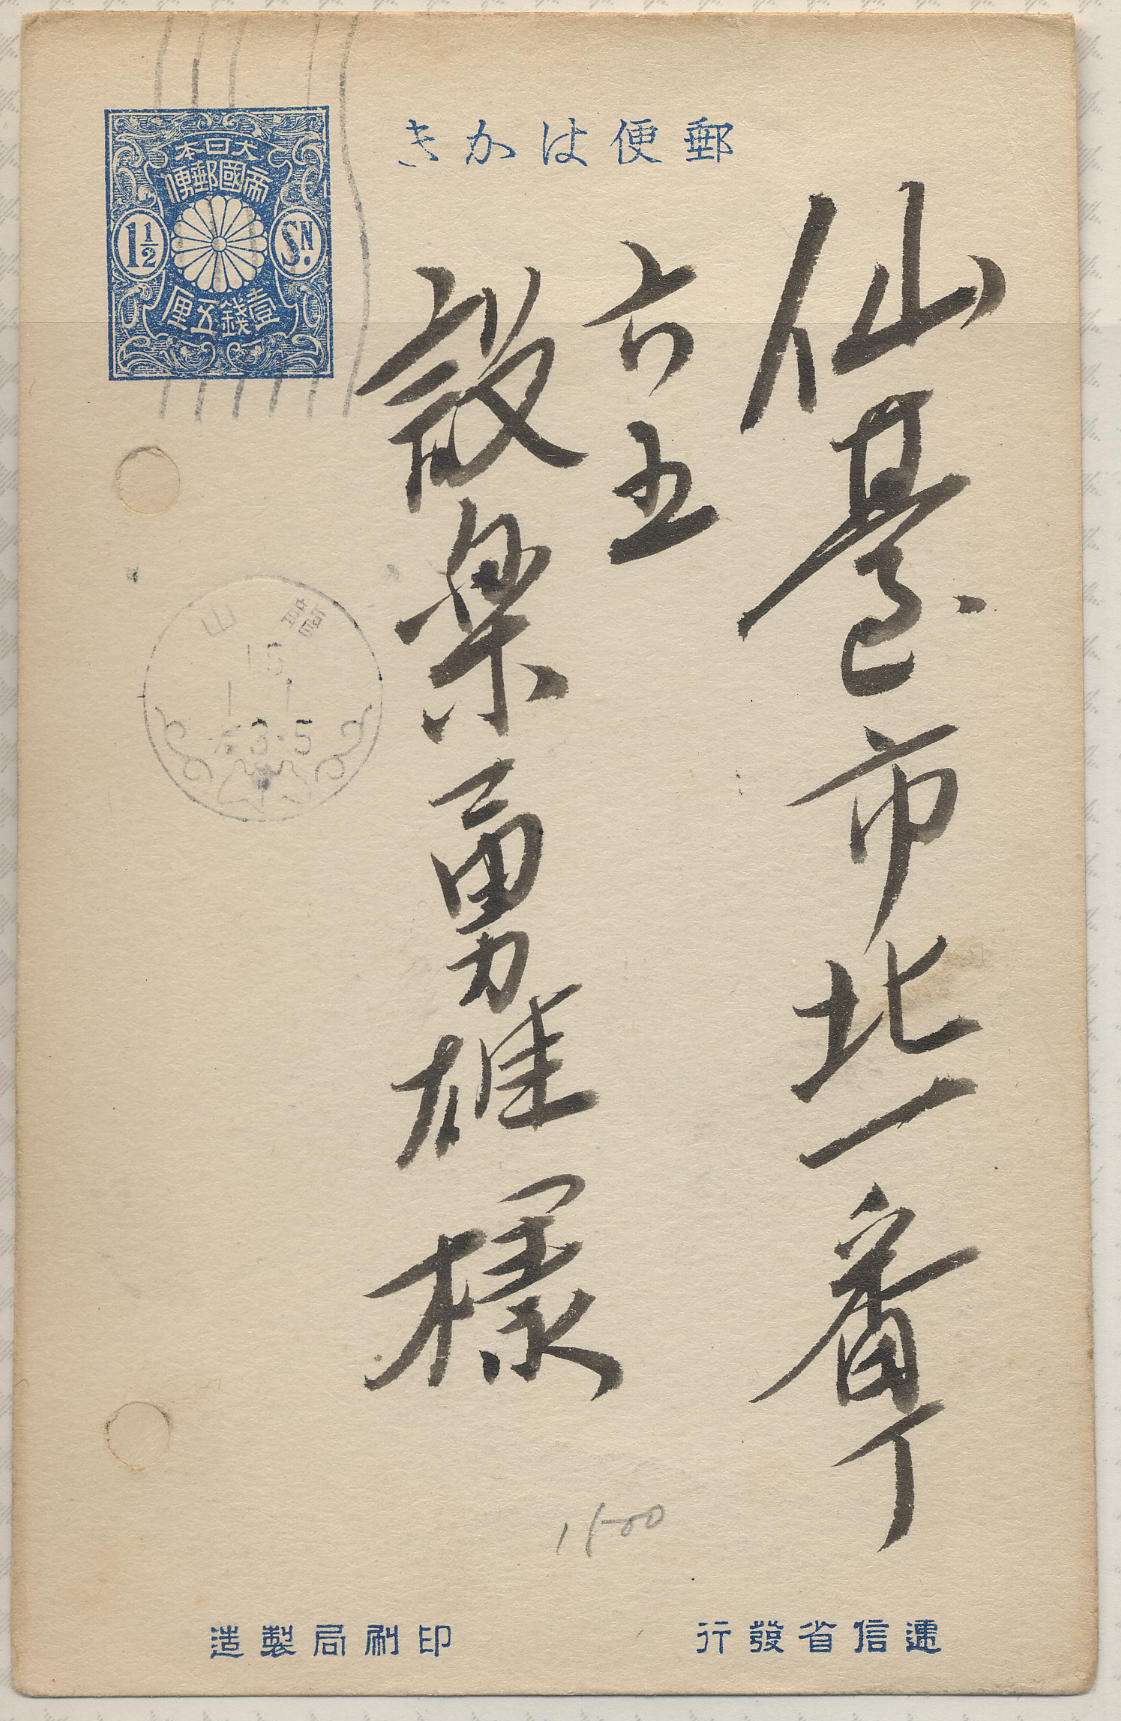 郵便はかき
大日本
帝國郵便
1½
SN.
壹錢五厘
仙臺市北一番丁
六五
設樂勇雄様
龍山
15
1 1
3-5
1500
遞信省發行
印刷局製造